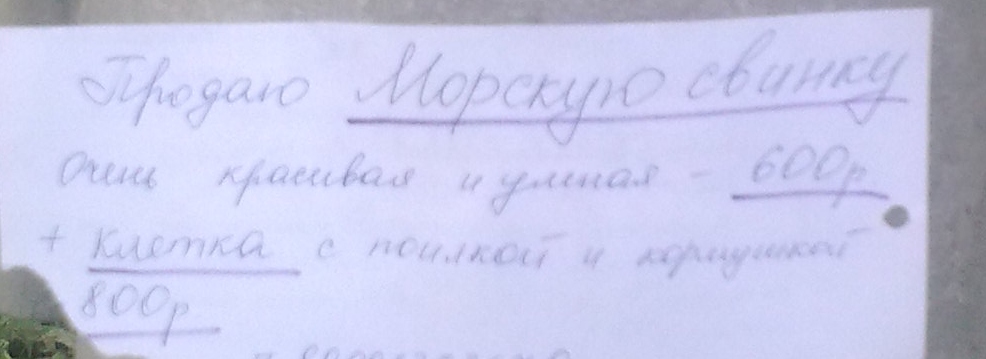 Продаю Морскую свинку
Очень красивая и умная - 600р
+ Клетка с поилкой и кормушкой
800р